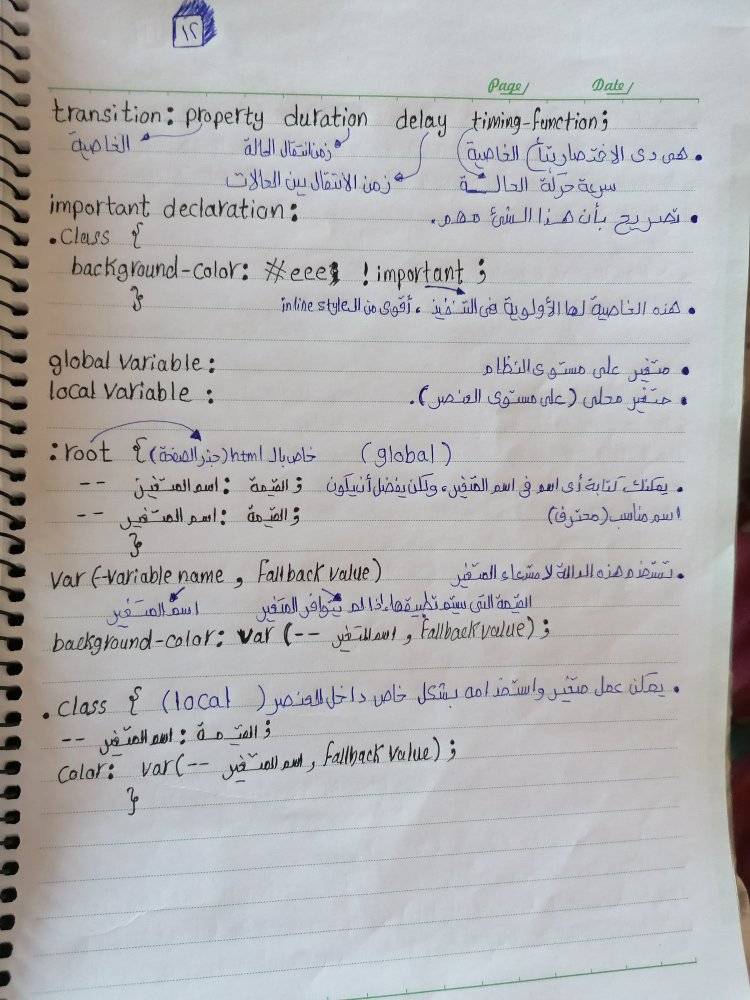 ١٢
Page/ Date/
transition: property duration delay timing-function;
الخاصية زمن انتقال الحالة • هى دى الاختصار بتاع الخاصية
زمن الانتقال بين الحالات سرعة حركة الحالة
important declaration: • تصريح بأن هذا الشئ مهم.
.Class {
background-color: #eee; !important ;
} • هذه الخاصية لها الأولوية فى التنفيذ ، أقوى من الـ inline style
global variable: • متغير على مستوى النظام
local variable : • متغير محلى (على مستوى العنصر).
:root { (جذر الصفحة) خاص بال html (global)
-- اسم المتغير : القيمة ; • يمكنك كتابة أى اسم فى اسم المتغير، ولكن يفضل أن يكون
-- اسم المتغير : القيمة ; اسم مناسب (محترف)
}
var (-variable name , Fallback value) • تستخدم هذه الدالة لاستدعاء المتغير
اسم المتغير القيمة التى سيتم تطبيقها إذا لم يتوافر المتغير
background-color: var (-- اسم المتغير , Fallback value) ;
.class { (local) • يمكن عمل متغير واستخدامه بشكل خاص داخل العنصر
-- اسم المتغير : القيمة ;
Color: var(-- اسم المتغير , Fallback value) ;
}